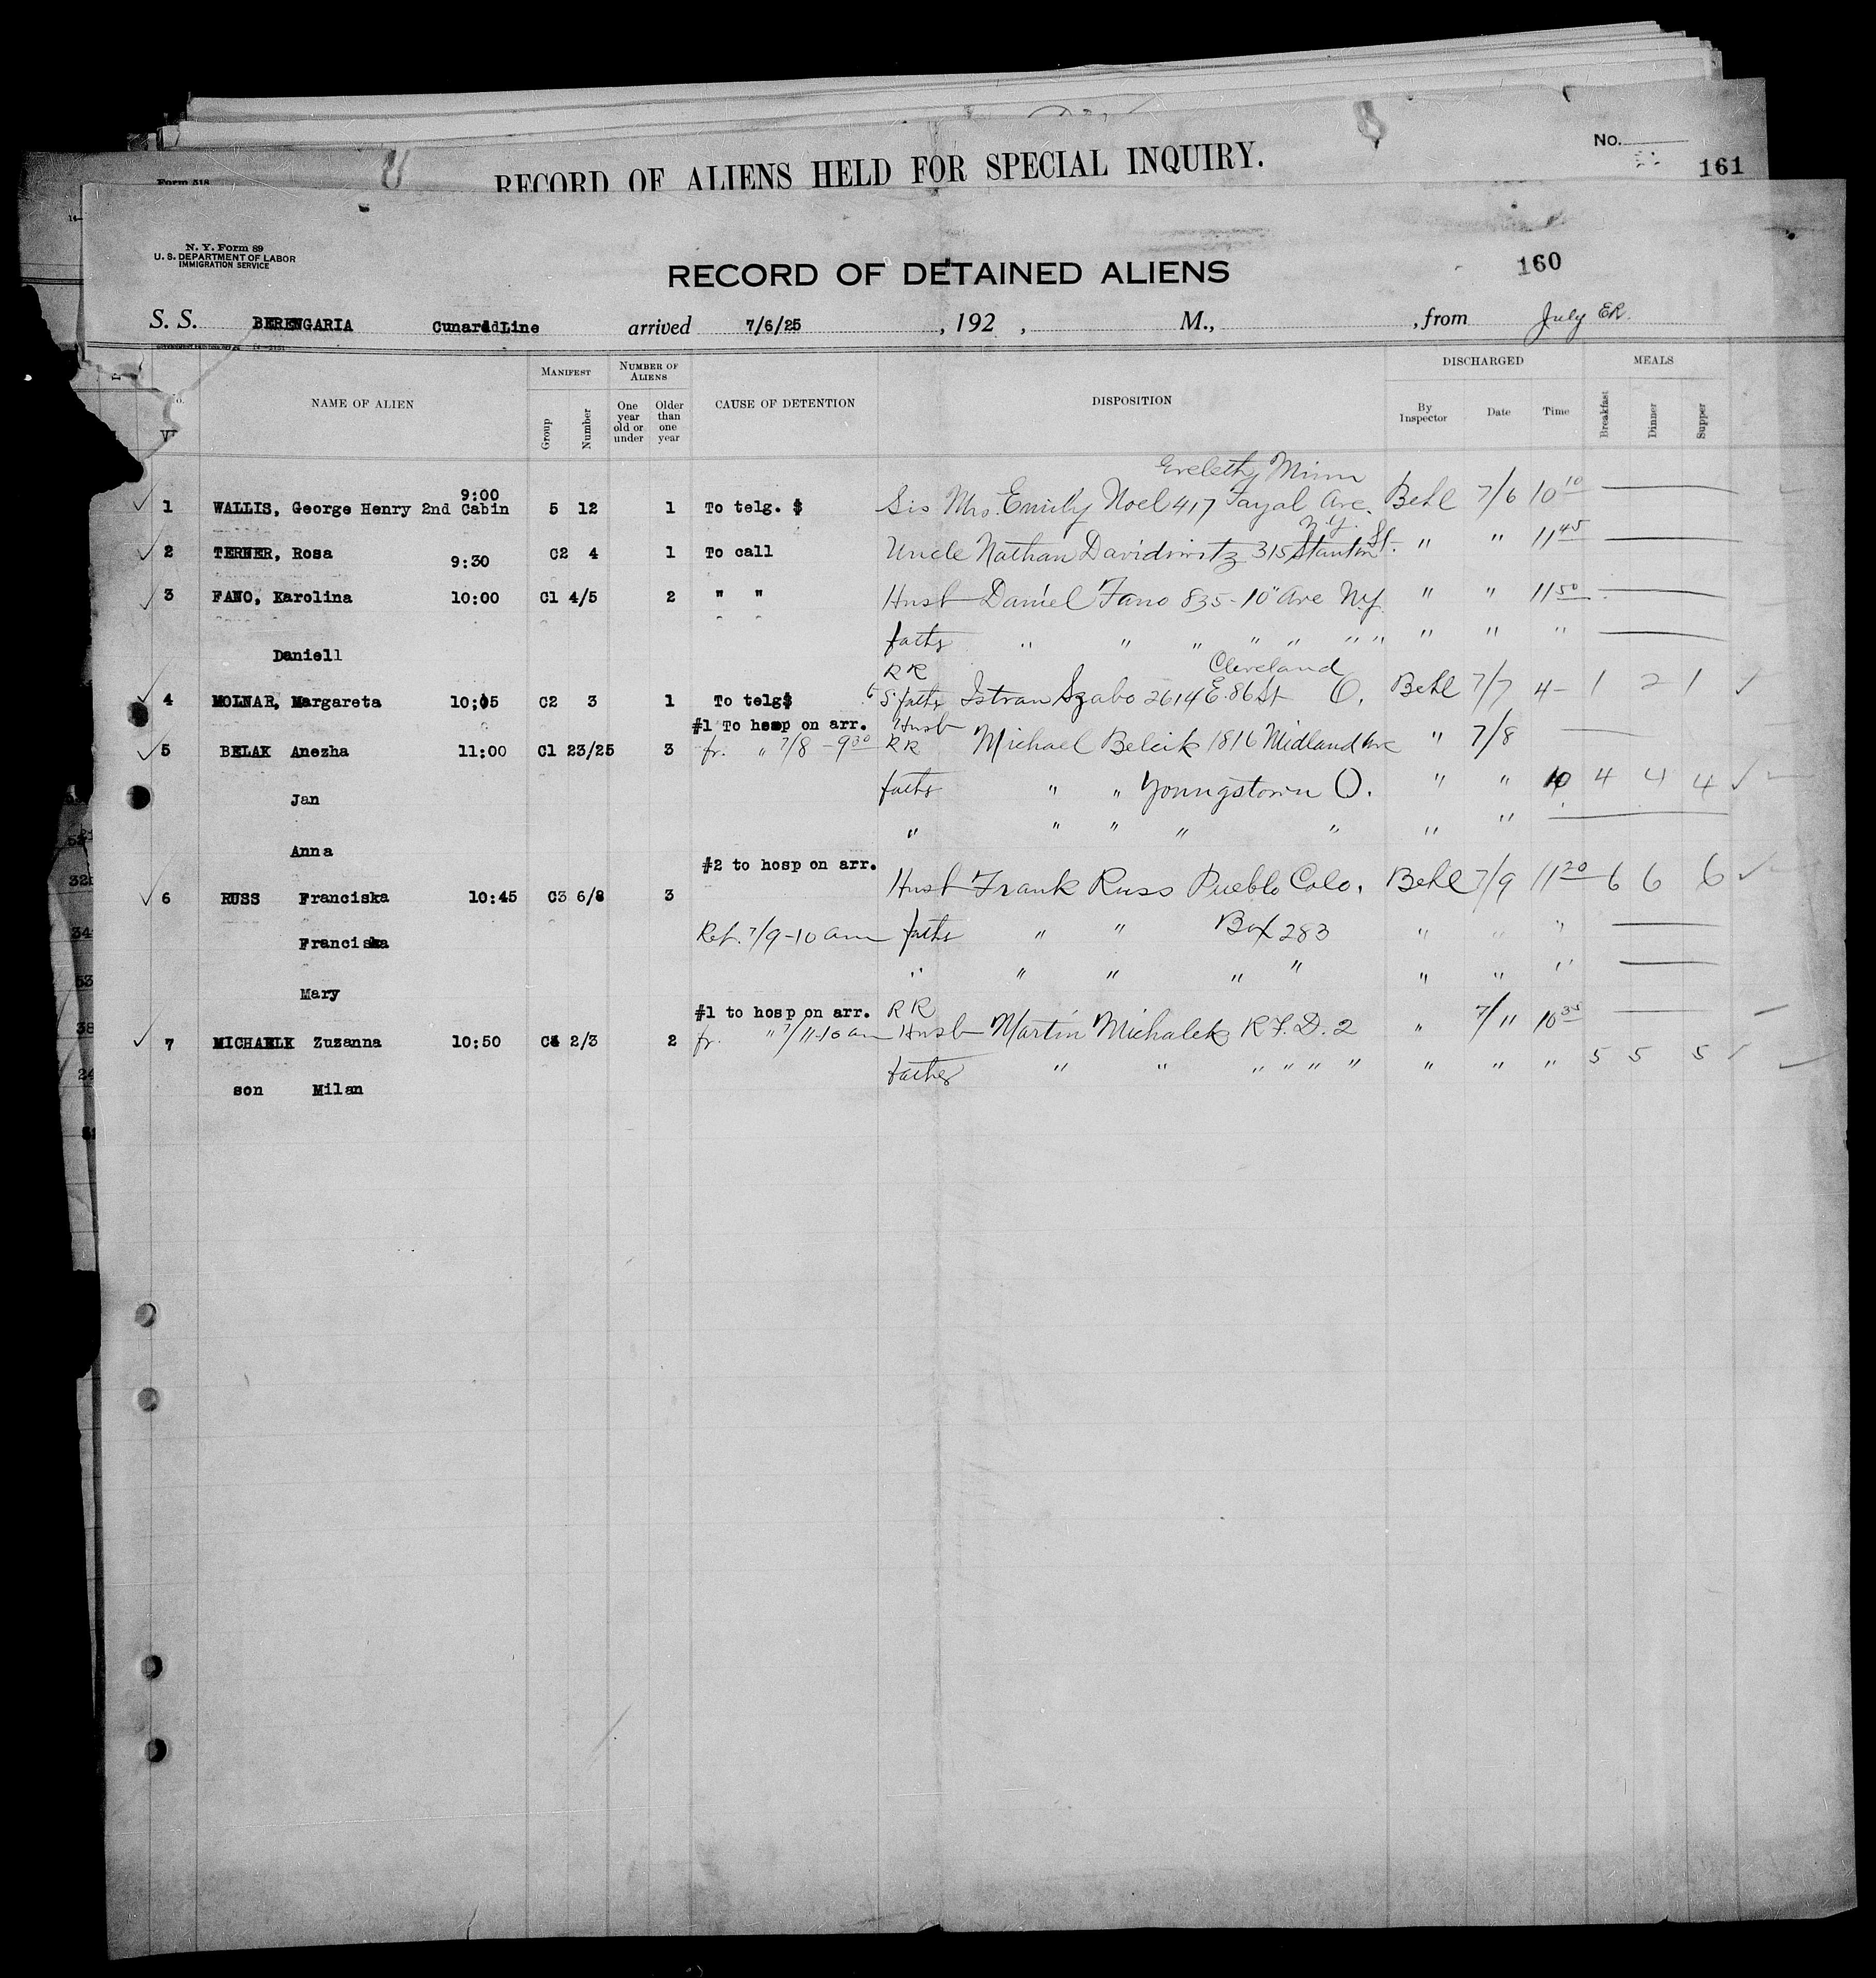 No.
161
RECORD OF ALIENS HELD FOR SPECIAL INQUIRY.
Form 518
N. Y. Form 89
U. S. DEPARTMENT OF LABOR
IMMIGRATION SERVICE
RECORD OF DETAINED ALIENS
160
S. S. BERENGARIA Cunard Line arrived 7/6/25 , 192 , M., , from July ER.
NAME OF ALIEN
MANIFEST
Group
Number
NUMBER OF ALIENS
One year old or under
Older than one year
CAUSE OF DETENTION
DISPOSITION
DISCHARGED
By Inspector
Date
Time
MEALS
Breakfast
Dinner
Supper
9:00 Eveleth, Minn
1 WALLIS, George Henry 2nd Cabin 5 12 1 To telg. $ Sis Mrs. Emily Noel 417 Fayal Ave. Behl 7/6 10 10
N.Y.
2 TERNER, Rosa 9:30 C2 4 1 To call Uncle Nathan Davidowitz 315 Stanton St. " " 11 45
3 FANO, Karolina 10:00 C1 4/5 2 " " Husb Daniel Fano 835-10" Ave N.Y. " " 11 50
Daniell father " " " " " " " " " "
RR Cleveland
4 MOLNAR, Margareta 10:05 C2 3 1 To telg$ S father Istvan Szabo 2614 E. 86 St O. Behl 7/7 4- 1 2 1
#1 To hosp on arr. Husb
5 BELAK Anezha 11:00 C1 23/25 3 fr. " 7/8 - 9 30 RR Michael Belcik 1816 Midland Ave " 7/8
Jan father " " Youngstown O. " " 10 4 4 4
Anna " " " " " " "
#2 to hosp on arr.
6 RUSS Franciska 10:45 C3 6/8 3 Husb Frank Russ Pueblo Colo. Behl 7/9 11 20 6 6 6
Franciska Ret. 7/9-10 am father " " Box 283 " " "
Mary " " " " " " " "
#1 to hosp on arr. RR
7 MICHAELK Zuzanna 10:50 C4 2/3 2 fr. " 7/11-10 am Husb Martin Michalek R.F.D. 2 " 7/11 10 35
son Milan father " " " " " " " " " 5 5 5